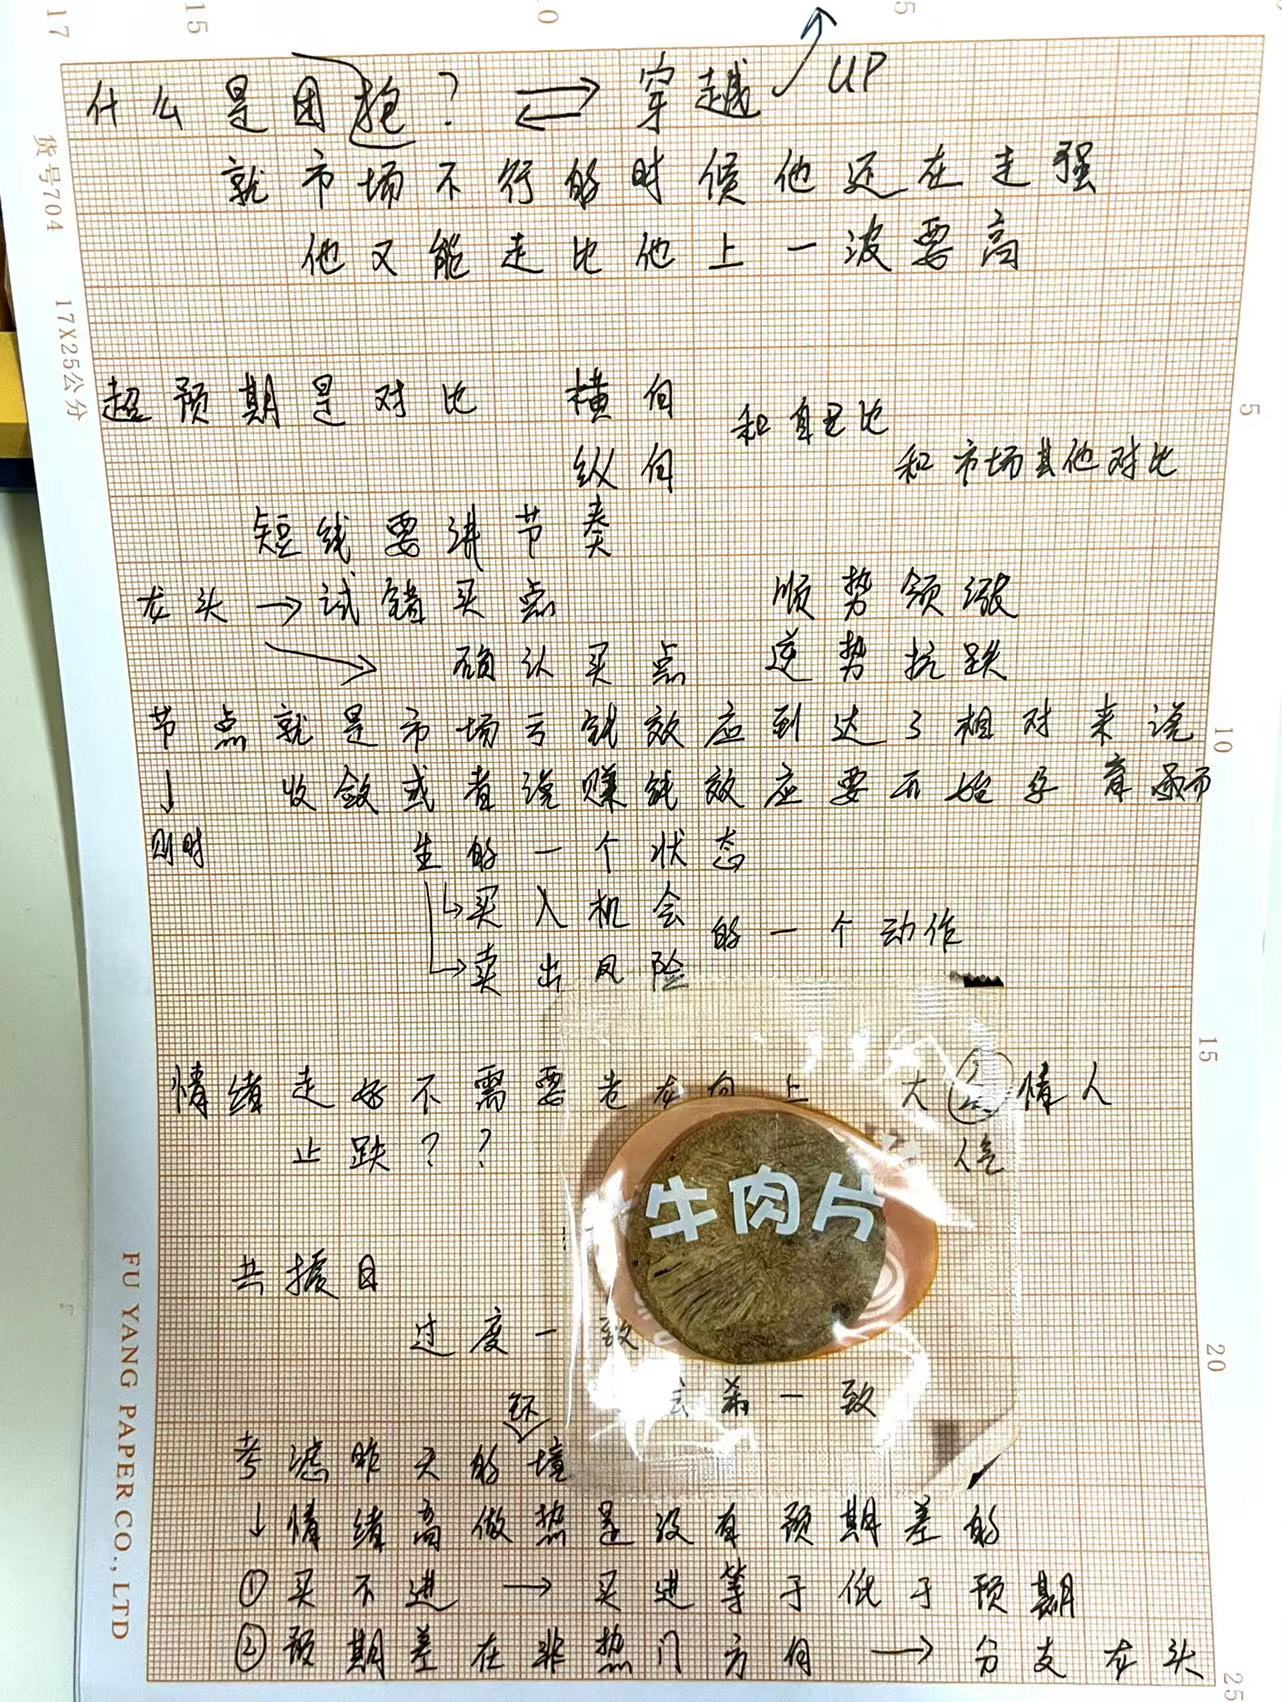 17 15 10 5
什么是团抱？ 穿越 UP
就市场不行的时候他还在走强
他又能走比他上一波要高
货号704 17X25公分
超预期是对比 横向
和自己比
纵向
和市场其他对比
短线要讲节奏
龙头→试错买点 顺势领涨
→确认买点 逆势抗跌
节点就是市场亏钱效应到达了相对来说
↓ 收敛或者说赚钱效应要开始孕育而
则时 生的一个状态
买入机会
的一个动作
卖出风险
情绪走好不需要老龙向上 大 情人
止跌？？ 人气
牛肉片
共振日
过度一致
会杀一致
环
考滤昨天的境
↓情绪高做热是没有预期差的
①买不进→买进等于低于预期
②预期差在非热门方向→分支龙头
FU YANG PAPER CO., LTD
5
10
15
20
25